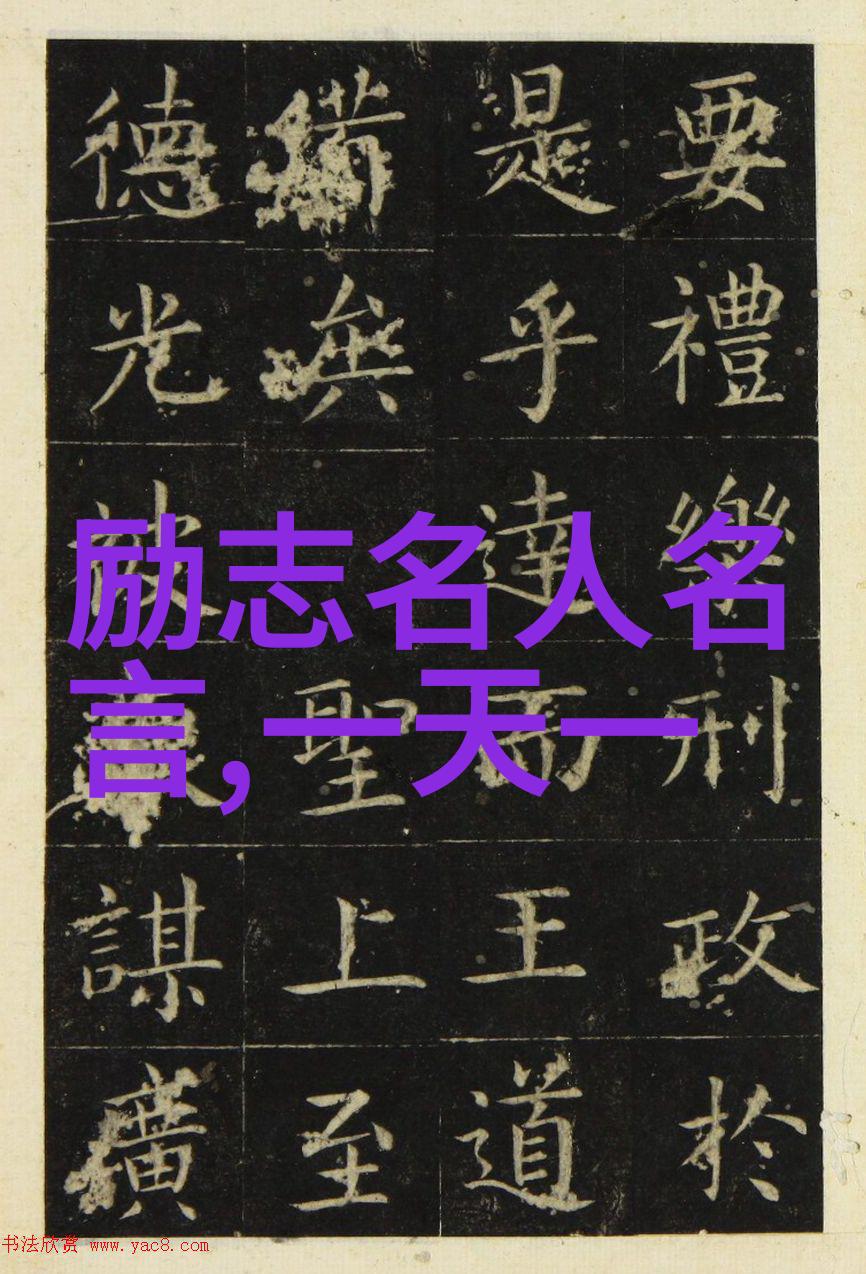 要禮樂刑政於
是乎達王道
備無聖上至
德光被謀廣
励志名人名
言,一天一
书法欣赏 www.yac8.com